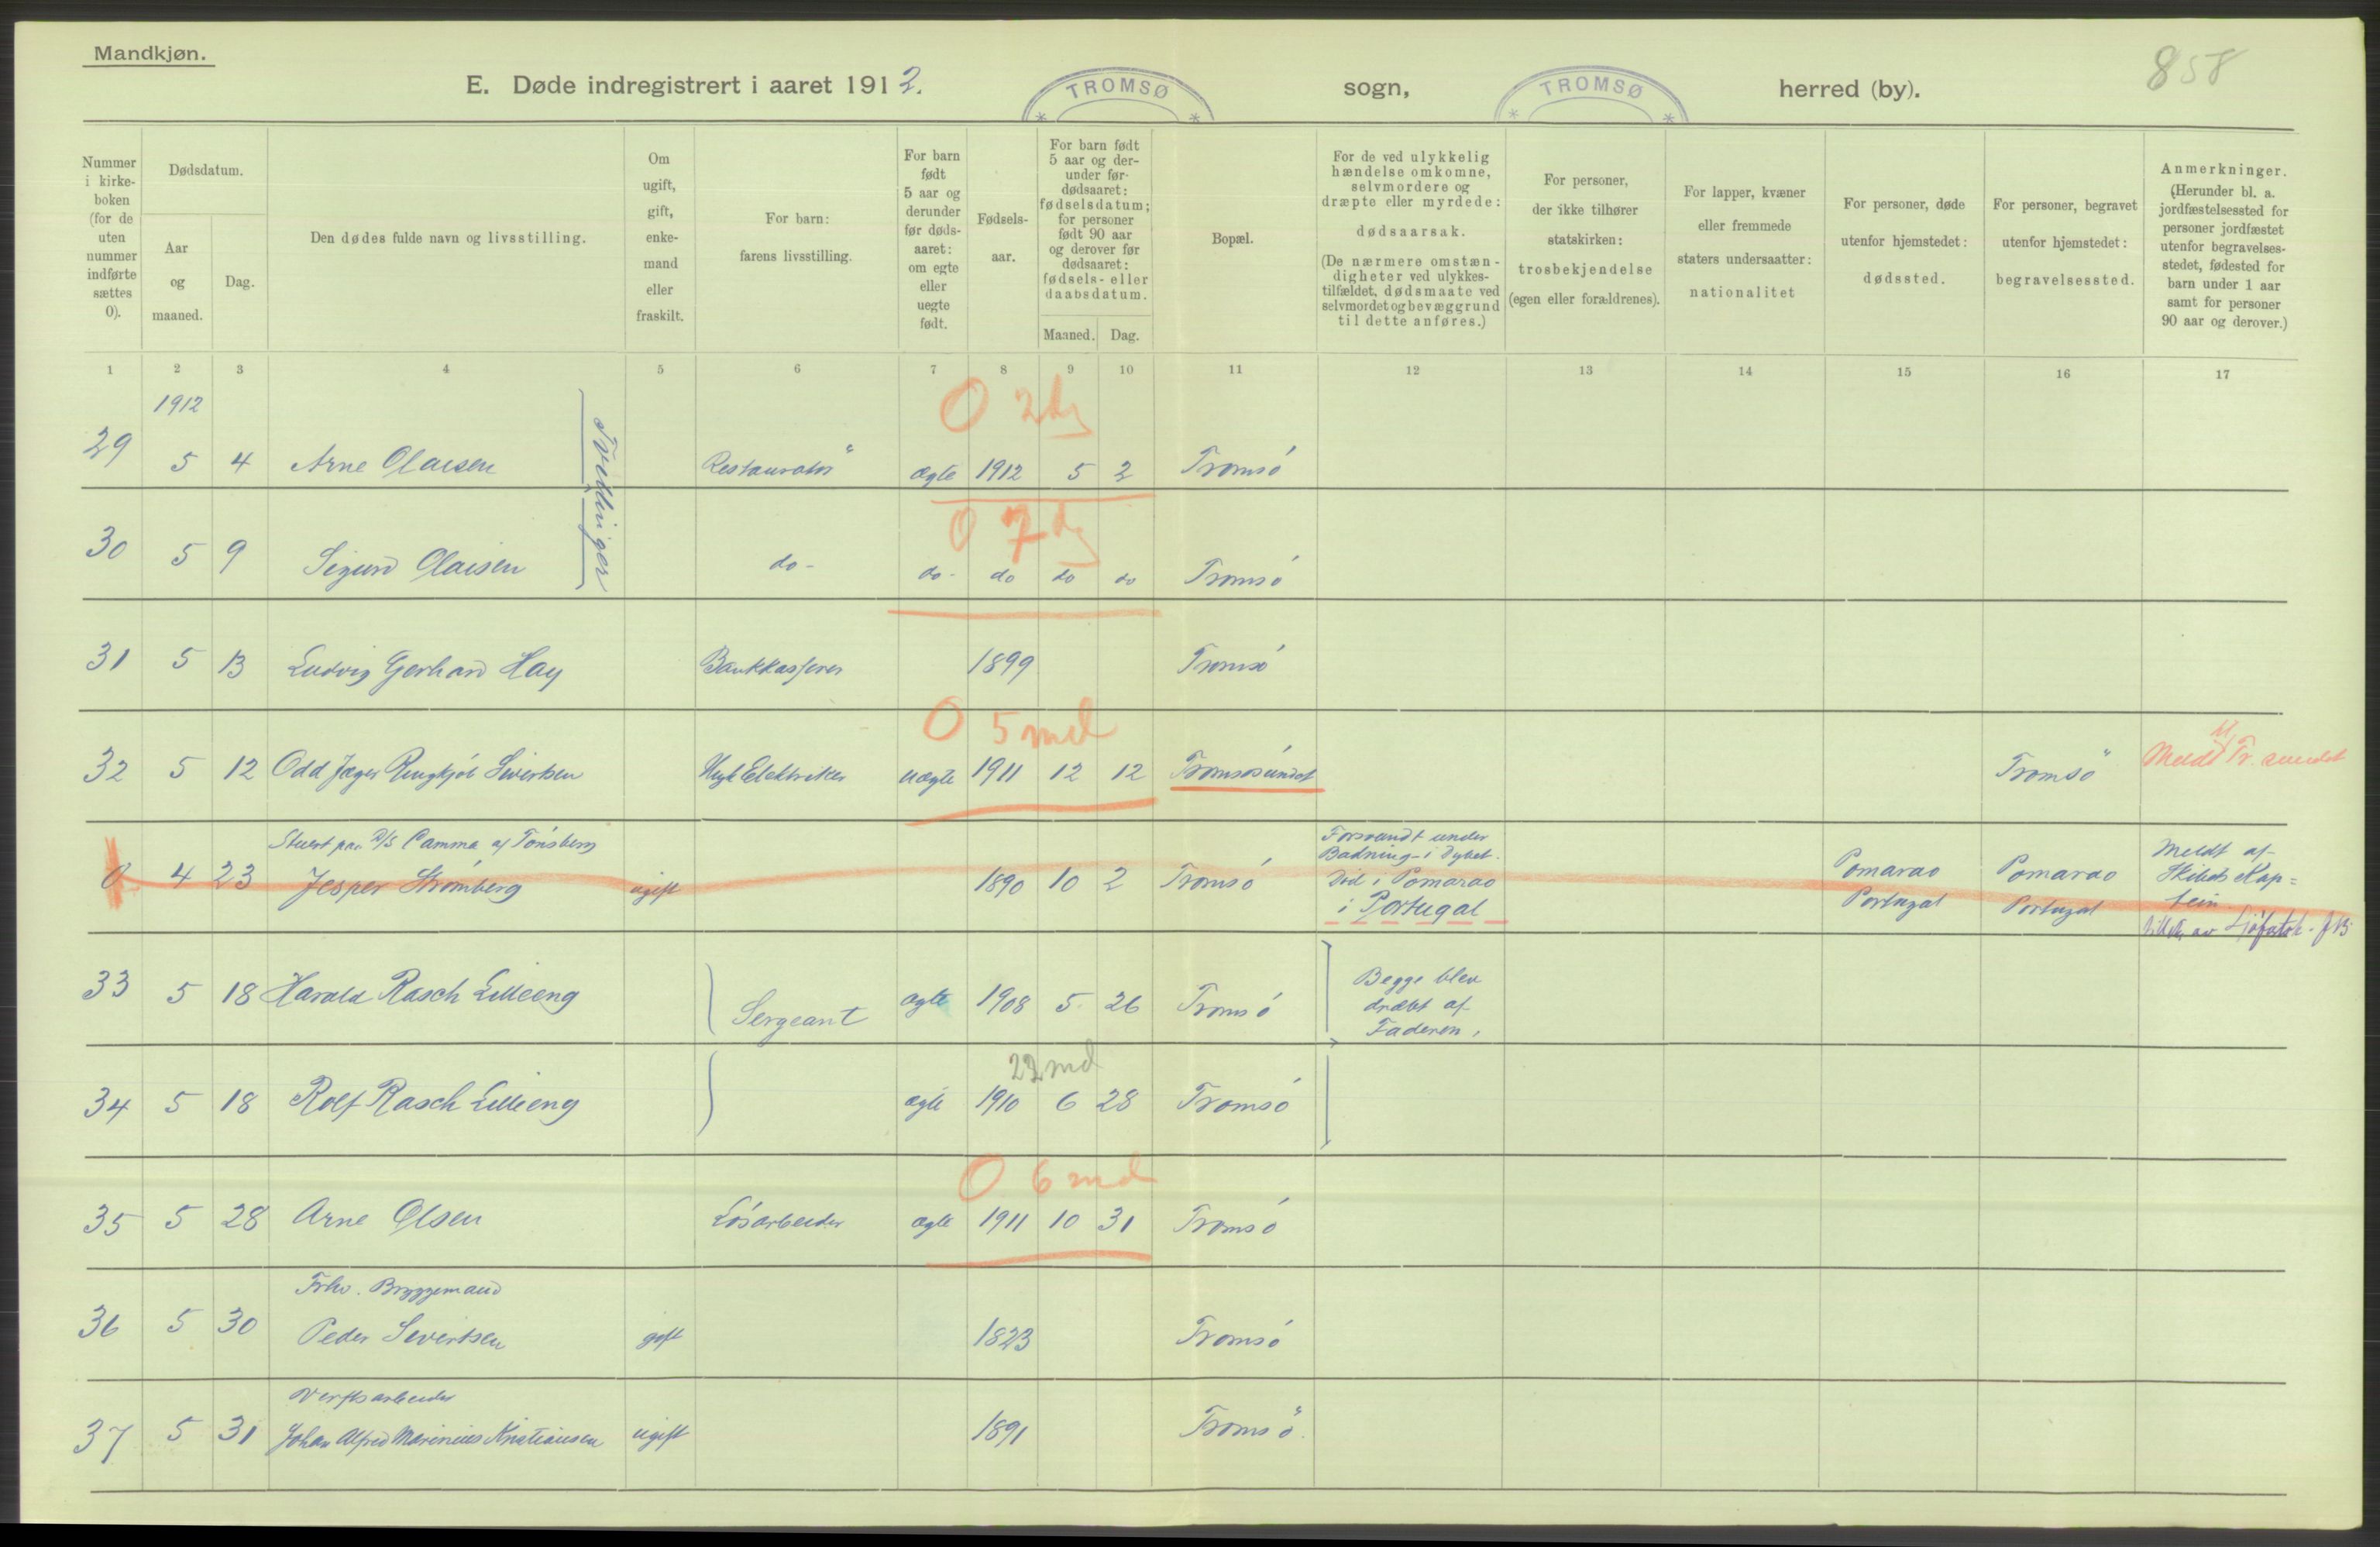 Mandkjøn.
858
E. Døde indregistrert i aaret 1912. TROMSØ sogn, TROMSØ herred (by).
Nummer i kirke-boken (for de uten nummer indførte sættes 0).
Dødsdatum.
Aar og maaned.
Dag.
Den dødes fulde navn og livsstilling.
Om ugift, gift, enke-mand eller fraskilt.
For barn: farens livsstilling.
For barn født 5 aar og derunder før døds-aaret: om egte eller uegte født.
Fødsels-aar.
For barn født 5 aar og der-under før dødsaaret: fødselsdatum; for personer født 90 aar og derover før dødsaaret: fødsels- eller daabsdatum.
Maaned. Dag.
Bopæl.
For de ved ulykkelig hændelse omkomne, selvmordere og dræpte eller myrdede: dødsaarsak. (De nærmere omstæn-digheter ved ulykkes-tilfældet, dødsmaate ved selvmordet og bevæggrund til dette anføres.)
For personer, der ikke tilhører statskirken: trosbekjendelse (egen eller forældrenes).
For lapper, kvæner eller fremmede staters undersaatter: nationalitet
For personer, døde utenfor hjemstedet: dødssted.
For personer, begravet utenfor hjemstedet: begravelsessted.
Anmerkninger. (Herunder bl. a. jordfæstelsessted for personer jordfæstet utenfor begravelses-stedet, fødested for barn under 1 aar samt for personer 90 aar og derover.)
1 2 3 4 5 6 7 8 9 10 11 12 13 14 15 16 17
1912
0 2 dg
29 5 4 Arne Olaisen Restauratør ægte 1912 5 2 Tromsø
Tvillinger
0 7 dg
30 5 9 Sigurd Olaisen do- do- do do do Tromsø
31 5 13 Ludvig Gerhard Hay Bankkasserer 1899 Tromsø
0 5 md
32 5 12 Odd Jæger Ringkjøb Sivertsen Ugf Elektriker uægte 1911 12 12 Tromsøsundet Tromsø Meldt Tr. sundet
Stuert paa D/S Camma af Tønsberg
0 4 23 Jesper Strømberg ugift 1890 10 2 Tromsø
Forsvandt under
Badning i Dybet.
Død i Pomarao
i Portugal
Pomarao
Portugal
Pomarao
Portugal
Meldt af
Skibets Kap=
tein
33 5 18 Harald Rasch Lilleeng Sergeant ægte 1908 5 26 Tromsø
Begge blev
dræbt af
Faderen.
22 md
34 5 18 Rolf Rasch Lilleeng ægte 1910 6 28 Tromsø
0 6 md
35 5 28 Arne Olsen Løsarbeider ægte 1911 10 31 Tromsø
Frhv. Bryggemand
36 5 30 Peder Sivertsen gift 1823 Tromsø
Verftsarbeider
37 5 31 Johan Alfred Marinius Kristiansen ugift 1891 Tromsø.